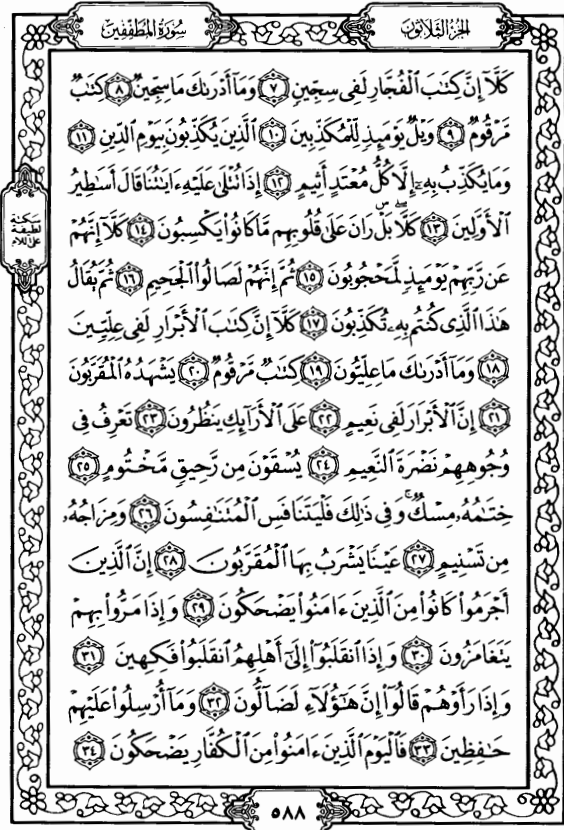 سُورَةُ المُطَفِّفِينَ الجُزْءُ الثَّلَاثُونَ
كَلَّآ إِنَّ كِتَٰبَ ٱلۡفُجَّارِ لَفِى سِجِّينٍ ٧ وَمَآ أَدۡرَىٰكَ مَا سِجِّينٌ ٨ كِتَٰبٌ
مَّرۡقُومٌ ٩ وَيۡلٌ يَوۡمَئِذٍ لِّلۡمُكَذِّبِينَ ١٠ ٱلَّذِينَ يُكَذِّبُونَ بِيَوۡمِ ٱلدِّينِ ١١
وَمَا يُكَذِّبُ بِهِۦٓ إِلَّا كُلُّ مُعۡتَدٍ أَثِيمٍ ١٢ إِذَا تُتۡلَىٰ عَلَيۡهِ ءَايَٰتُنَا قَالَ أَسَٰطِيرُ
ٱلۡأَوَّلِينَ ١٣ كَلَّاۖ بَلۡۜ رَانَ عَلَىٰ قُلُوبِهِم مَّا كَانُواْ يَكۡسِبُونَ ١٤ كَلَّآ إِنَّهُمۡ
سكتة
لطيفة
على اللام
عَن رَّبِّهِمۡ يَوۡمَئِذٍ لَّمَحۡجُوبُونَ ١٥ ثُمَّ إِنَّهُمۡ لَصَالُواْ ٱلۡجَحِيمِ ١٦ ثُمَّ يُقَالُ
هَٰذَا ٱلَّذِى كُنتُم بِهِۦ تُكَذِّبُونَ ١٧ كَلَّآ إِنَّ كِتَٰبَ ٱلۡأَبۡرَارِ لَفِى عِلِّيِّينَ
١٨ وَمَآ أَدۡرَىٰكَ مَا عِلِّيُّونَ ١٩ كِتَٰبٌ مَّرۡقُومٌ ٢٠ يَشۡهَدُهُ ٱلۡمُقَرَّبُونَ
٢١ إِنَّ ٱلۡأَبۡرَارَ لَفِى نَعِيمٍ ٢٢ عَلَى ٱلۡأَرَآئِكِ يَنظُرُونَ ٢٣ تَعۡرِفُ فِى
وُجُوهِهِمۡ نَضۡرَةَ ٱلنَّعِيمِ ٢٤ يُسۡقَوۡنَ مِن رَّحِيقٍ مَّخۡتُومٍ ٢٥
خِتَٰمُهُۥ مِسۡكٌۚ وَفِى ذَٰلِكَ فَلۡيَتَنَافَسِ ٱلۡمُتَنَٰفِسُونَ ٢٦ وَمِزَاجُهُۥ
مِن تَسۡنِيمٍ ٢٧ عَيۡنًا يَشۡرَبُ بِهَا ٱلۡمُقَرَّبُونَ ٢٨ إِنَّ ٱلَّذِينَ
أَجۡرَمُواْ كَانُواْ مِنَ ٱلَّذِينَ ءَامَنُواْ يَضۡحَكُونَ ٢٩ وَإِذَا مَرُّواْ بِهِمۡ
يَتَغَامَزُونَ ٣٠ وَإِذَا ٱنقَلَبُوٓاْ إِلَىٰٓ أَهۡلِهِمُ ٱنقَلَبُواْ فَكِهِينَ ٣١
وَإِذَا رَأَوۡهُمۡ قَالُوٓاْ إِنَّ هَٰٓؤُلَآءِ لَضَآلُّونَ ٣٢ وَمَآ أُرۡسِلُواْ عَلَيۡهِمۡ
حَٰفِظِينَ ٣٣ فَٱلۡيَوۡمَ ٱلَّذِينَ ءَامَنُواْ مِنَ ٱلۡكُفَّارِ يَضۡحَكُونَ ٣٤
٥٨٨